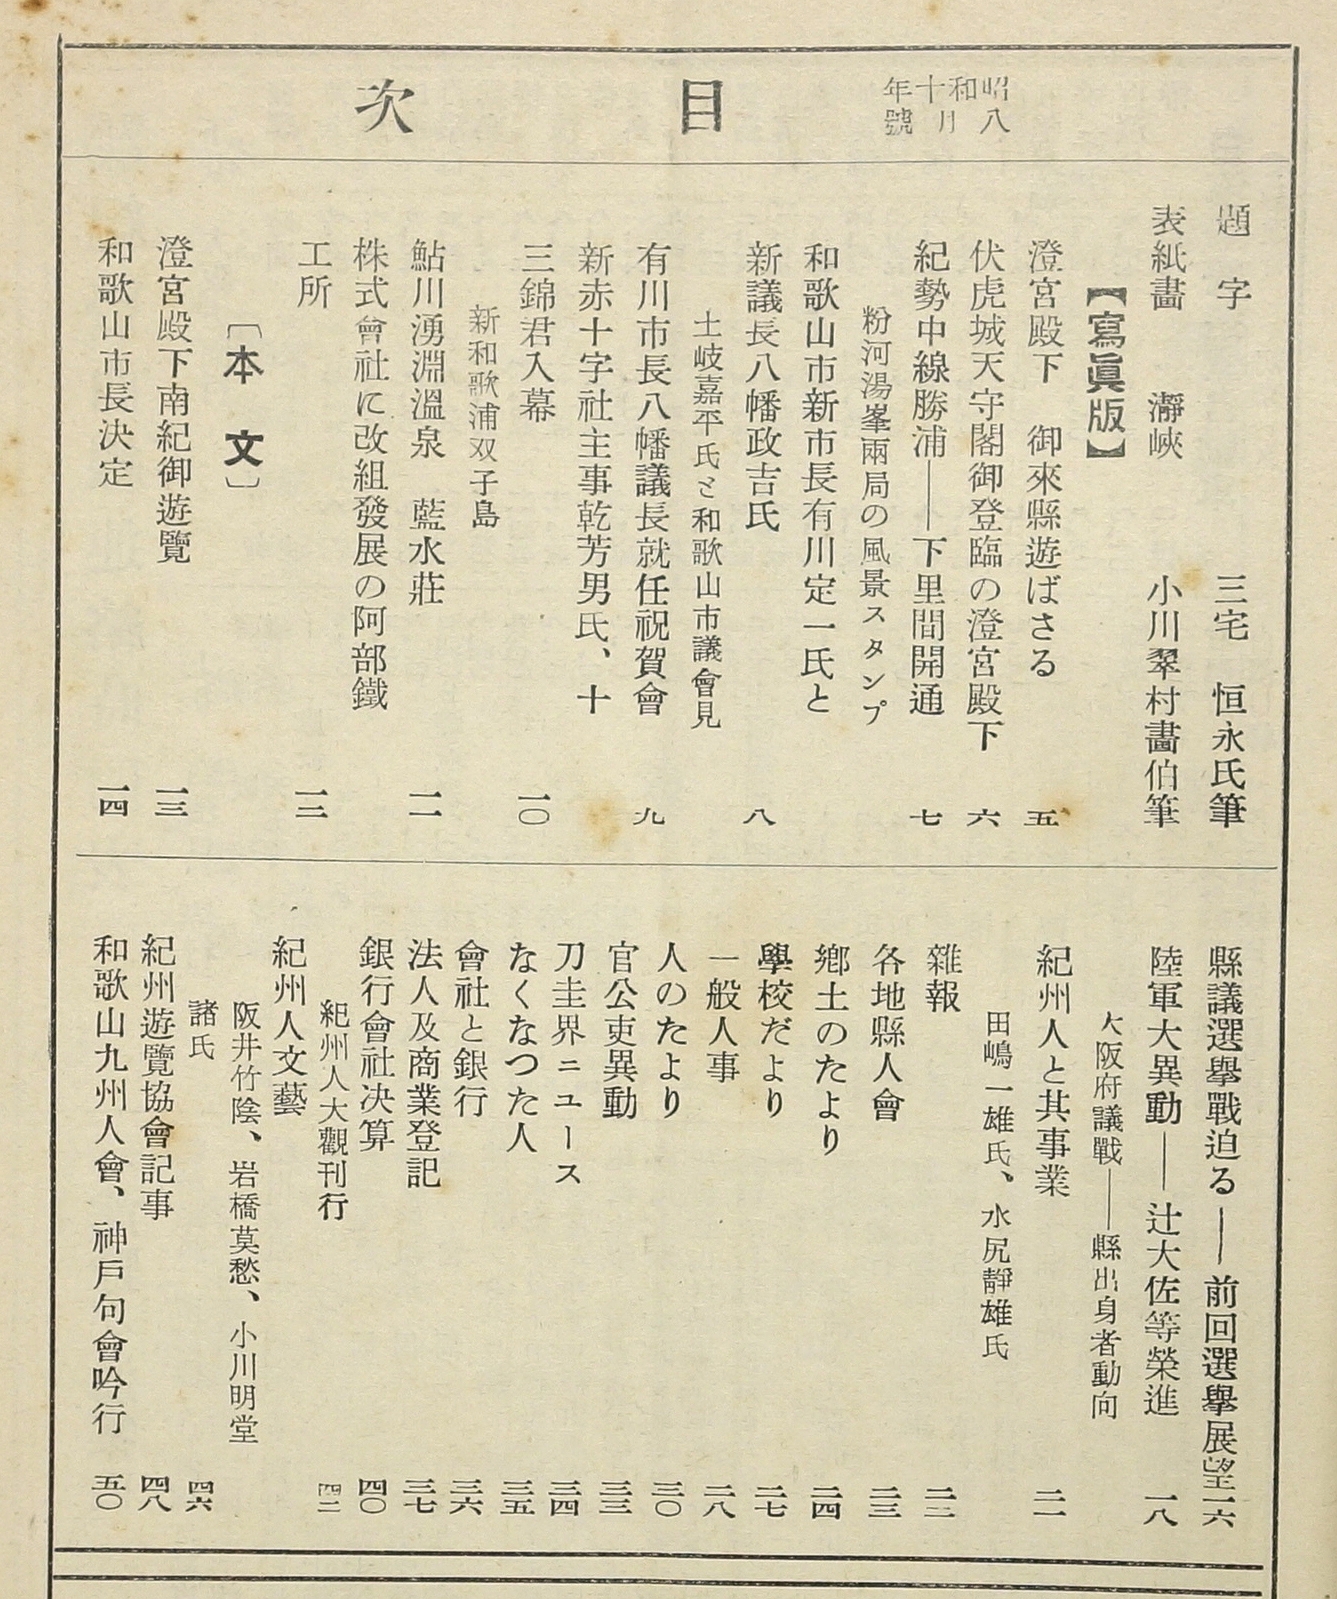 目次
昭和十年八月號
題字 三宅 恒永氏筆
表紙畵 瀞峽 小川翠村畵伯筆
【寫眞版】
澄宮殿下 御來縣遊ばさる 五
伏虎城天守閣御登臨の澄宮殿下 六
紀勢中線勝浦――下里間開通 七
粉河湯峯兩局の風景スタンプ
和歌山市新市長有川定一氏と
新議長八幡政吉氏 八
土岐嘉平氏と和歌山市議會見
有川市長八幡議長就任祝賀會 九
新赤十字社主事乾芳男氏、十
三錦君入幕 一〇
新和歌浦双子島
鮎川湧淵溫泉 藍水莊 一一
株式會社に改組發展の阿部鐵
工所 一二
〔本文〕
澄宮殿下南紀御遊覽 一三
和歌山市長決定 一四
縣議選擧戰迫る――前回選擧展望 一六
陸軍大異動――辻大佐等榮進 一八
大阪府議戰――縣出身者動向
紀州人と其事業 二一
田嶋一雄氏、水尻靜雄氏
雜報 二二
各地縣人會 二三
鄕土のたより 二四
學校だより 二七
一般人事 二八
人のたより 三〇
官公吏異動 三三
刀圭界ニュース 三四
なくなつた人 三五
會社と銀行 三六
法人及商業登記 三七
銀行會社決算 四〇
紀州人大觀刊行 四二
紀州人文藝
阪井竹陰、岩橋莫愁、小川明堂
諸氏 四六
紀州遊覽協會記事 四八
和歌山九州人會、神戶句會吟行 五〇